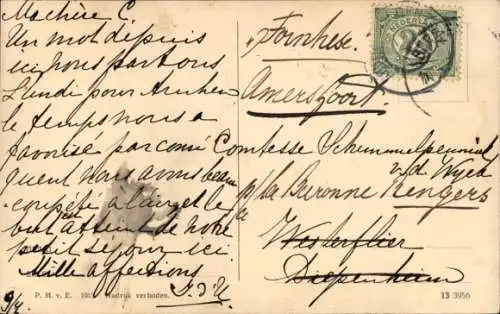 Ma chère C.
Un mot depuis
ici nous partons
Lundi pour Arnhem
le temps nous a
favorisé par conséquent
nous avons beau-
coup été à l'air et le
but atteint de notre
petit séjour ici.
Mille affections
9/4
Fornhese.
Amersfoort.
Comtesse Schimmelpenninck
v/d Nyek
p/a la Baronne Rengers
Westerflier
Diepenheim
P. M. v. E. 191 Nadruk verboden.
13 3956